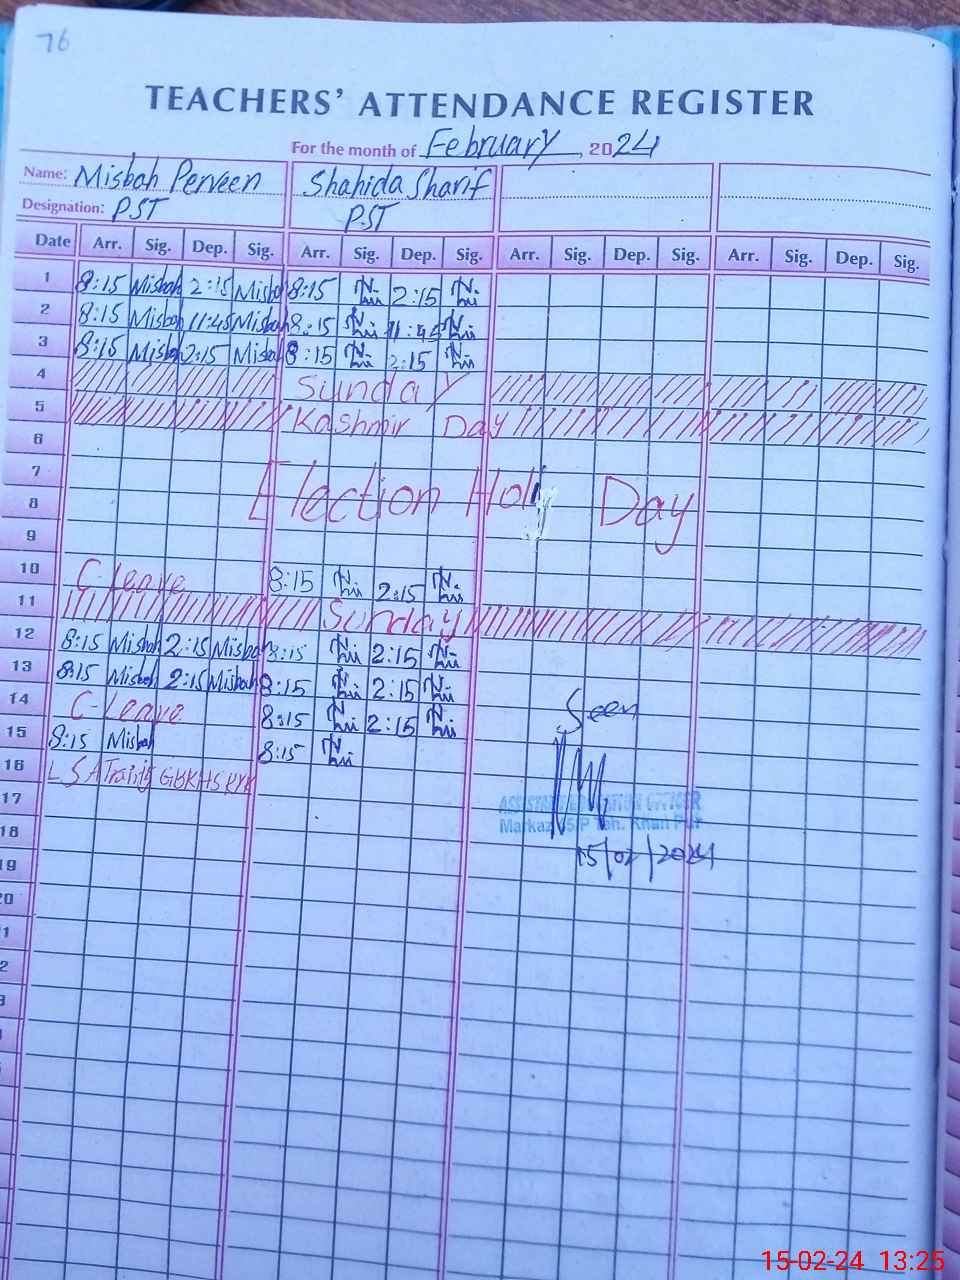 76
TEACHERS' ATTENDANCE REGISTER
For the month of February 2024
Name: Misbah Perveen Shahida Sharif
Designation: PST PST
Date Arr. Sig. Dep. Sig. Arr. Sig. Dep. Sig. Arr. Sig. Dep. Sig. Arr. Sig. Dep. Sig.
1 8:15 Misbah 2:15 Misbah 8:15 2:15
2 8:15 Misbah 11:45 Misbah 8:15 11:45
3 8:15 Misbah 2:15 Misbah 8:15 2:15
4 Sunday
5 Kashmir Day
6
7
8 Election Holy Day
9
10 C-Leave 8:15 2:15
11 Sunday
12 8:15 Misbah 2:15 Misbah 8:15 2:15
13 8:15 Misbah 2:15 Misbah 8:15 2:15
14 C-Leave 8:15 2:15
15 8:15 Misbah 8:15
16 LSA Training
17
18
19
20
1
2
3
Seen
ASSISTANT EDUCATION OFFICER
Markaz Teh. Khan Pur
15/02/2024
15-02-24 13:25